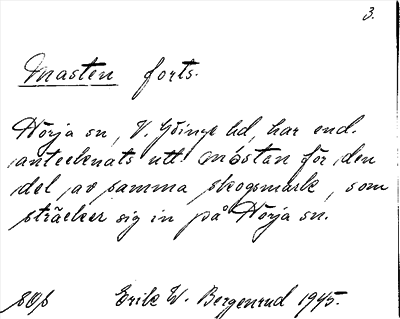 3.
Masten forts.
Hörja sn, V. Göinge hd, har end.
antecknats utt. mås̀tan för den
del av samma skogsmark, som
sträcker sig in på Hörja sn.
Erik W. Bergenrud 1945.